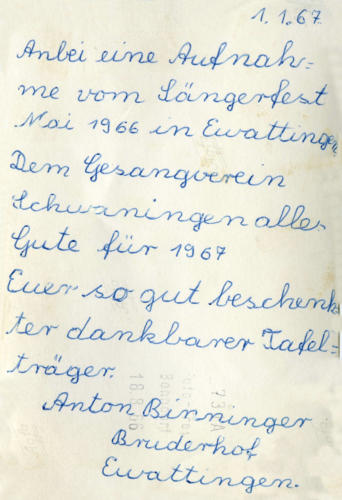 1.1.67
Anbei eine Aufnah=
me vom Sängerfest
Mai 1966 in Ewattingen
Dem Gesangverein
Schwaningen alles
Gute für 1967
Euer so gut beschenk=
ter dankbarer Tafel=
träger.
Anton Binninger
Bruderhof
Ewattingen.